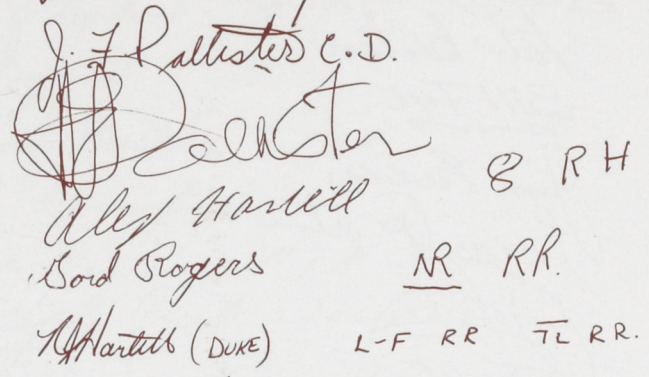 J. F. Pallister C.D.
Pallister
Alex Hartill 8 R H
Gord Rogers NR RR.
Hartill (DUKE) L-F RR TL RR.